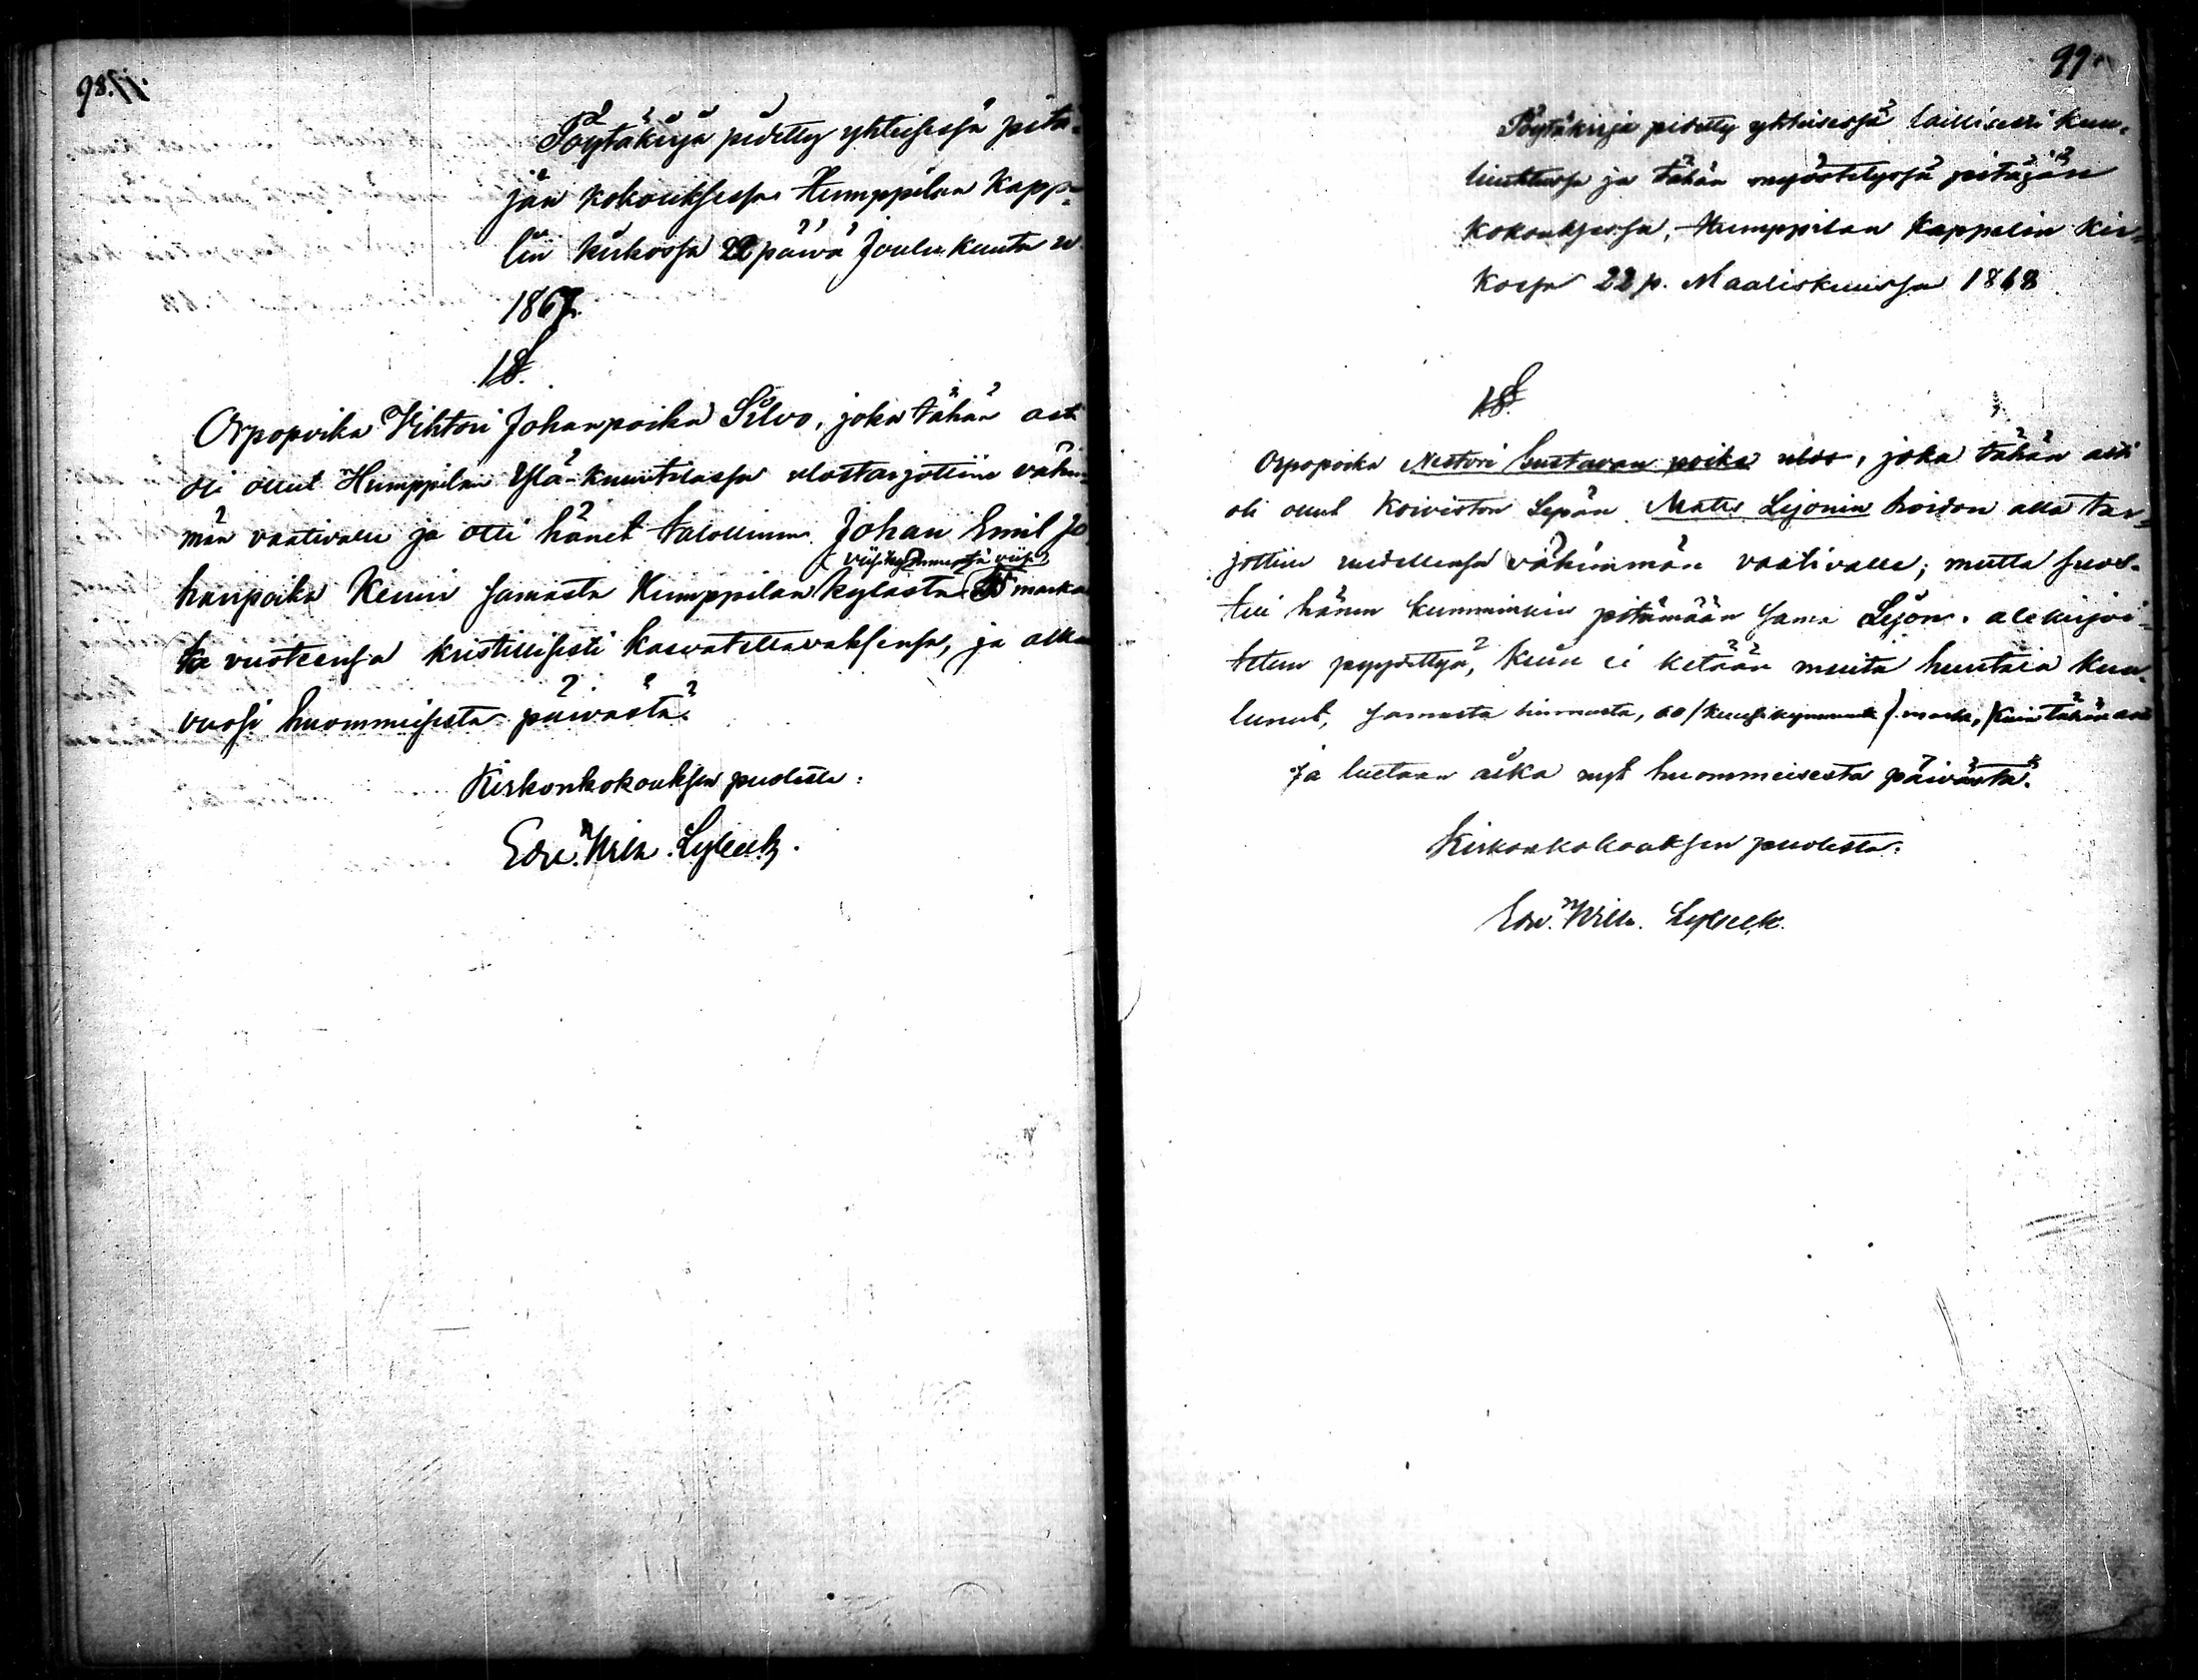 98.
Pöytäkirja pidetty yhteisessä pitä-
jän kokouksessa Humppilan Kapp-
lin kirkossa 22 päivä Joulukuuta
1867.
1 §.
Orpopoika Vihtori Johanpoika Silvo, joka tähän asti
oli ollut Humppilan Ylä-Kuurtilassa ulostarjottiin vähim-
män vaativalle ja otti hänet talollinen Johan Emil Jo-
viisikymmentä viisi
hanpoika Keuri samasta Humppilan kylästä 55 markka
ta vuoteensa kristillisesti kaswatettavaksensa, ja alka
vuosi huommisesta päiwästä.
Kirkonkokouksen puolesta:
Edv. Wilh. Lybeck.
99.
Pöytäkirja pidetty yhteisessä laillisesti kuu-
lutetussa ja tähän myöstetyssä pitäjän
kokouksessa, Humppilan Kappelin kir-
kossa 22 p. Maaliskuussa 1868
1 §.
Orpopoika Nestori Gustavan poika, joka tähän asti
oli ollut Koiviston Sepän Matts Lejonin hoidon alla tar-
jottiin uudellensa vähimmän vaativalle; mutta suos-
tui hänen kumminkin pitämään sama Lejon. alekirjoi-
tetun pyydettyä, kuin ei ketään muita huutaia kuu-
lunut, samasta hinnasta, 60 /kuusikymmentä/ marka, kuin tähän asti
ja luetaan aika nyt huommeisesta päivästä.
Kirkonkokouksen puolesta.
Edv. Wilh. Lybeck.